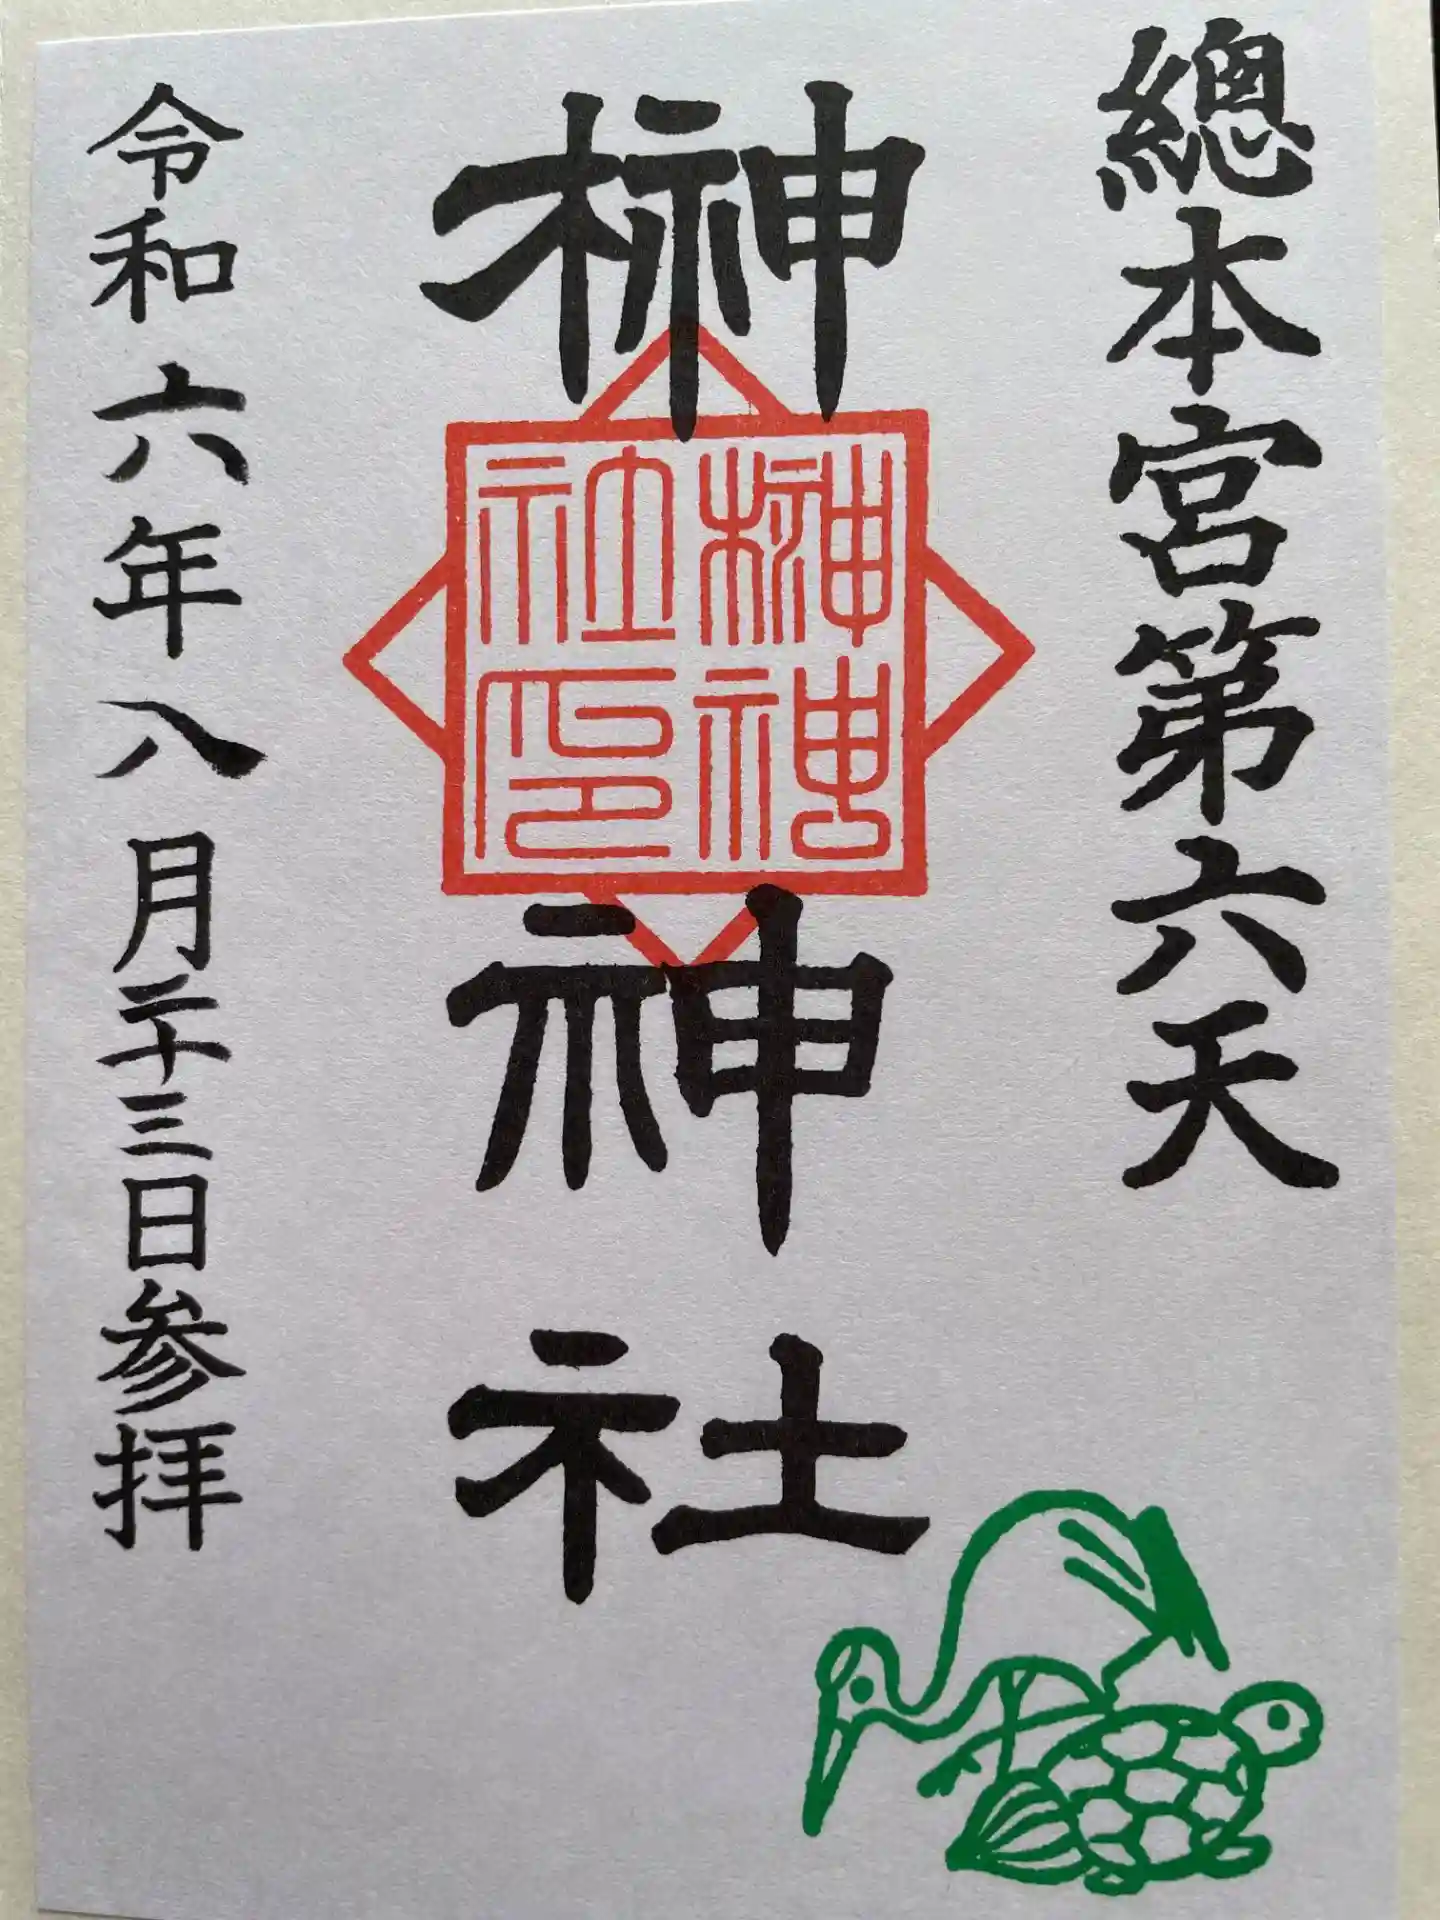 總本宮第六天
榊神社
榊神社印
令和六年八月二十三日参拝